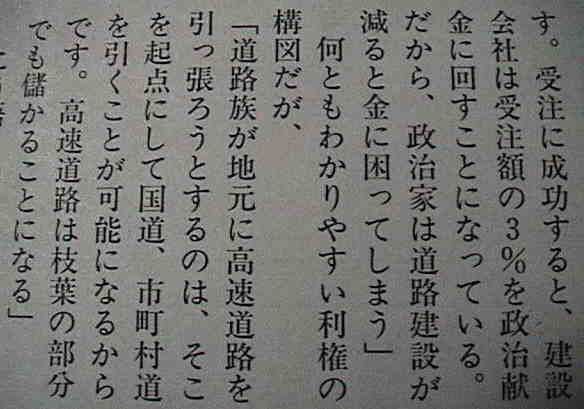 す。受注に成功すると、建設
会社は受注額の3%を政治献
金に回すことになっている。
だから、政治家は道路建設が
減ると金に困ってしまう」
何ともわかりやすい利権の
構図だが、
「道路族が地元に高速道路を
引っ張ろうとするのは、そこ
を起点にして国道、市町村道
を引くことが可能になるから
です。高速道路は枝葉の部分
でも儲かることになる」